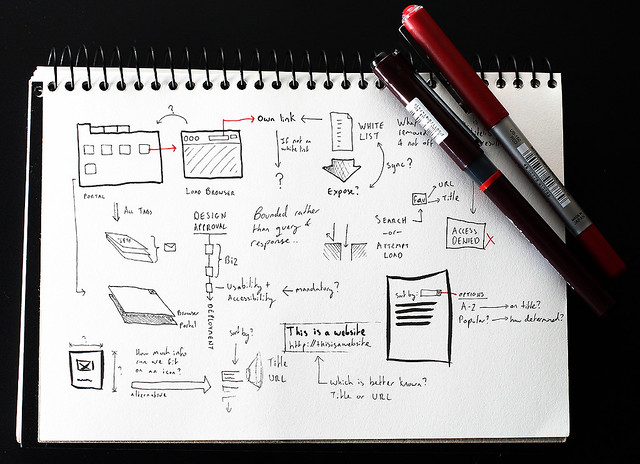 ?
Own link
WHITE
LIST
If not on
white list
?
Expose?
Sync?
What
removed
& not off
PORTAL
LOAD BROWSER
ALL TABS
DESIGN
APPROVAL
Biz
Usability +
Accessibility
mandatory?
DEPLOYMENT
Bounded rather
than query &
response..
Fav
URL
Title
SEARCH
-or-
ATTEMPT
LOAD
ACCESS
DENIED
X
Browser
Portal
sort by:
OPTIONS
A-Z
on title?
Popular?
how determined?
?
?
How much info
can we fit
on an icon?
alternative
sort by?
Title
URL
This is a website
http://thisisawebsite
which is better known?
Title or URL